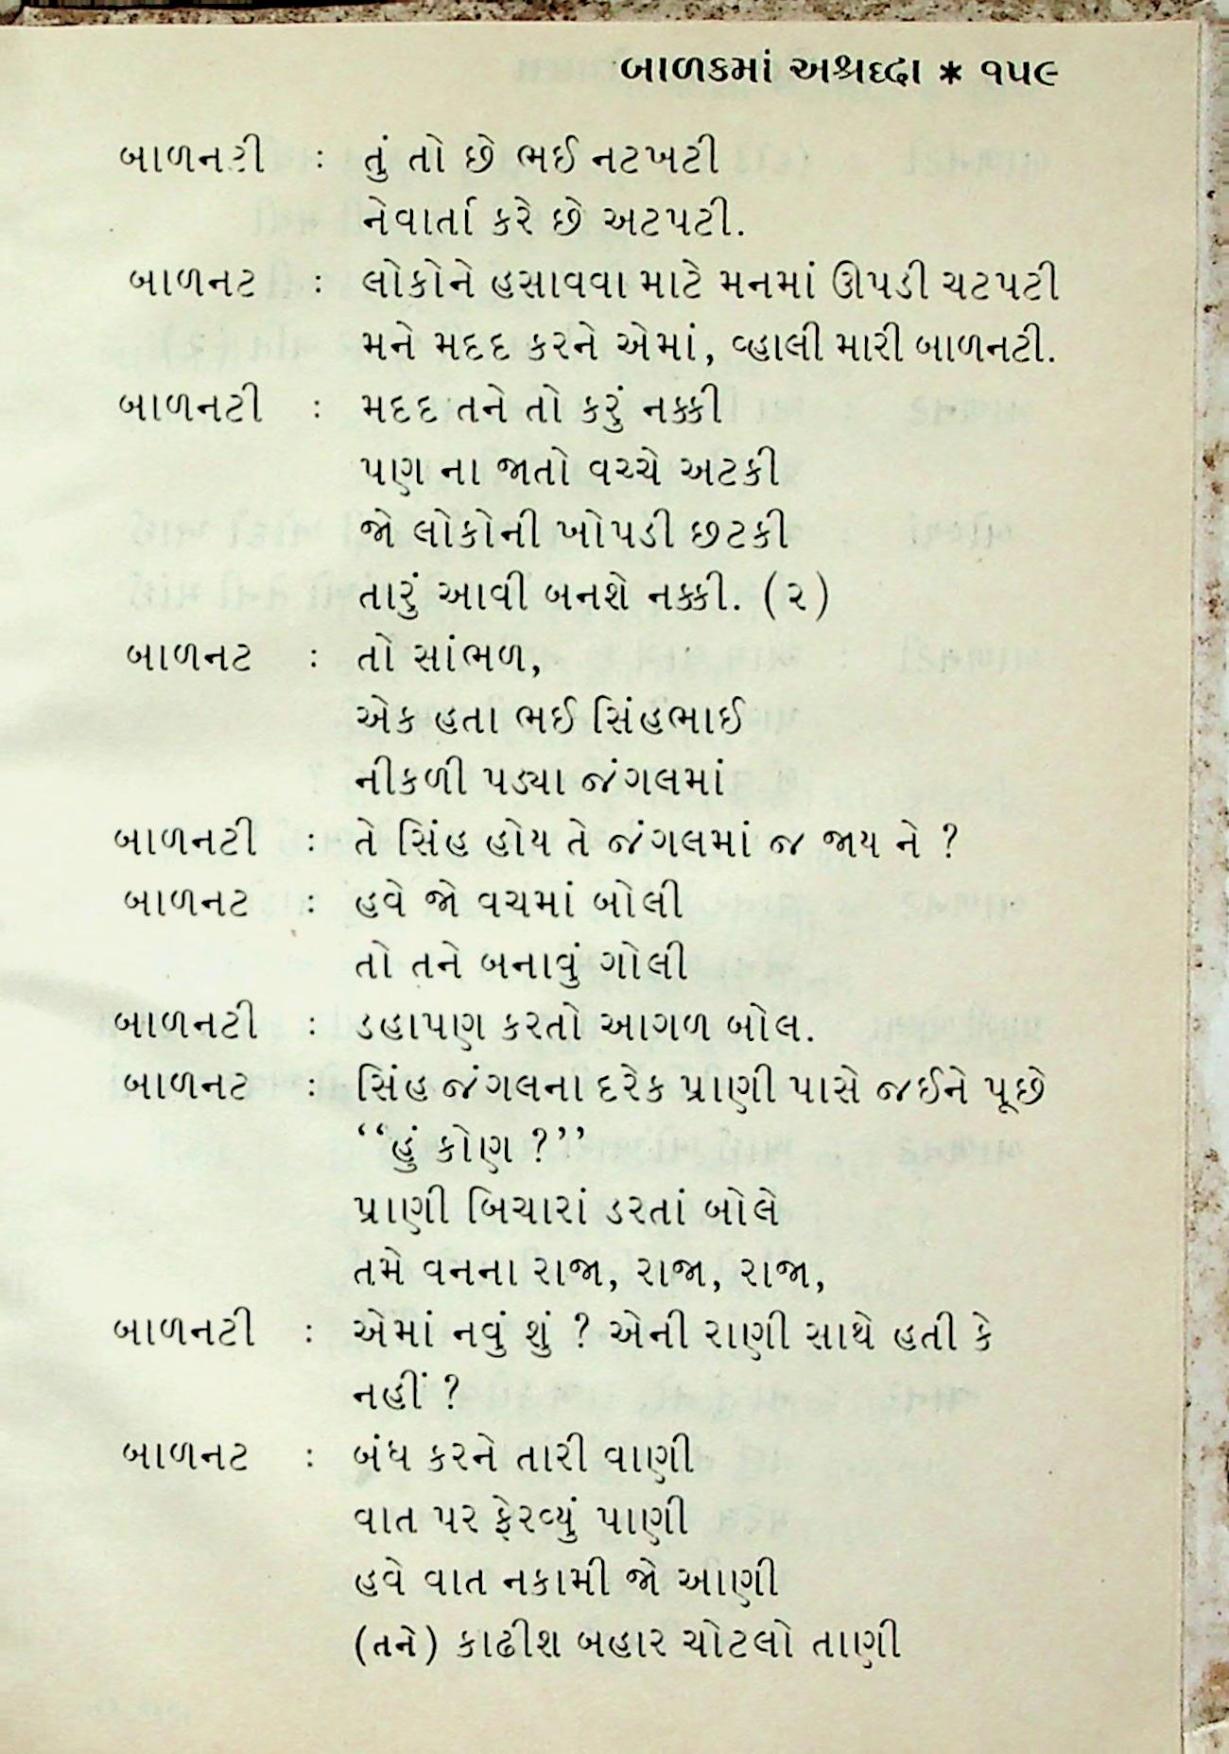 બાળકમાં અશ્રદ્ધા * ૧૫૯
બાળનટી : તું તો છે ભઈ નટખટી
નેવાર્તા કરે છે અટપટી.
બાળનટ : લોકોને હસાવવા માટે મનમાં ઊપડી ચટપટી
મને મદદ કરને એમાં, વ્હાલી મારી બાળનટી.
બાળનટી : મદદ તને તો કરું નક્કી
પણ ના જાતો વચ્ચે અટકી
જો લોકોની ખોપડી છટકી
તારું આવી બનશે નક્કી. (૨)
બાળનટ : તો સાંભળ,
એક હતા ભઈ સિંહભાઈ
નીકળી પડ્યા જંગલમાં
બાળનટી : તે સિંહ હોય તે જંગલમાં જ જાય ને ?
બાળનટ : હવે જો વચમાં બોલી
તો તને બનાવું ગોલી
બાળનટી : ડહાપણ કરતો આગળ બોલ.
બાળનટ : સિંહ જંગલના દરેક પ્રાણી પાસે જઈને પૂછે
‘‘હું કોણ ?’’
પ્રાણી બિચારાં ડરતાં બોલે
તમે વનના રાજા, રાજા, રાજા,
બાળનટી : એમાં નવું શું ? એની રાણી સાથે હતી કે
નહીં ?
બાળનટ : બંધ કરને તારી વાણી
વાત પર ફેરવ્યું પાણી
હવે વાત નકામી જો આણી
(તને) કાઢીશ બહાર ચોટલો તાણી